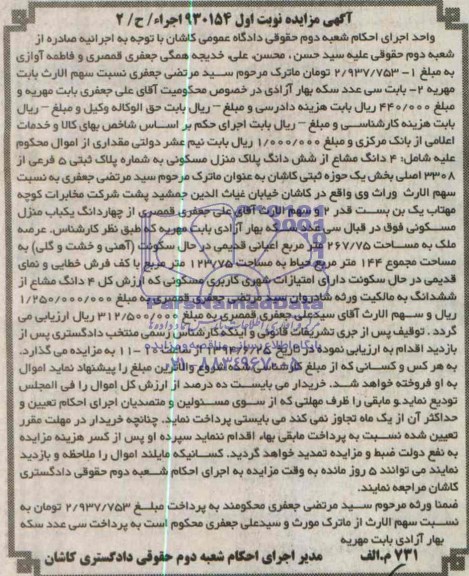 آگهی مزایده نوبت اول ۹۳۰۱۵۴ اجراء/ ح/ ۲
واحد اجرای احکام شعبه دوم حقوقی دادگاه عمومی کاشان با توجه به اجرائیه صادره از
شعبه دوم حقوقی علیه سید حسن ، محسن، علی، خدیجه همگی جعفری قمصری و فاطمه آوازی
به مبلغ ۱- ۲/۹۳۷/۷۵۳ تومان ماترک مرحوم سـید مرتضی جعفری نسبت سهم الارث بابت
مهریه ۲- بابت سی عدد سکه بهار آزادی در خصوص محکومیت آقای علی جعفری بابت مهریه و
مبلغ ۴۴۰/۰۰۰ ریال بابت هزینه دادرسی و مبلغ – ریال بابت حق الوکاله وکیل و مبلغ – ریال
بابت هزینه کارشناسـی و مبلغ – ریال بابت اجرای حکم بر اسـاس شاخص بهای کالا و خدمات
اعلامی از بانک مرکزی و مبلغ ۱/۰۰۰/۰۰۰ ریال بابت نیم عشر دولتی مقداری از اموال محکوم
علیه شامل: ۴ دانگ مشاع از شش دانگ پلاک منزل مسکونی به شماره پلاک ثبتی ۵ فرعی از
۳۳۰۸ اصلی بخش یک حوزه ثبتی کاشان به عنوان ماترک مرحوم سید مرتضی جعفری به نسبت
سهم الارث وراث وی واقع در کاشان خیابان غیاث الدین جمشید پشت شرکت مخابرات کوچه
مهتاب یک بن بست قدر ۲ و سهم الارث آقای علی جعفری قمصری از چهاردانگ یکباب منزل
مسـکونی فوق در قبال سی عدد سـکه بهار آزادی بابت مهریه که طبق نظر کارشناس. عرصه
ملک به مساحت ۲۶۷/۷۵ متر مربع اعیانی قدیمی در حال سکونت (آهنی و خشت و گلی) به
مساحت مجموع ۱۴۴ متر مربع حیاط به مساحت ۱۲۳/۷۵ متر مربع با کف فرش خطایی و نمای
قدیمی در حال سکونت دارای امتیازات شهری کاربری مسکونی که ارزش کل ۴ دانگ مشاع از
ششدانگ به مالکیت ورثه شادروان سید مرتضی جعفری قمصری به مبلغ ۱/۲۵۰/۰۰۰/۰۰۰
ریال و سـهم الارث آقای سیدعلی جعفری قمصری به مبلغ ۳۱۲/۵۰۰/۰۰۰ ریال ارزیابی می
گردد . توقیف پس از جری تشریفات قانونی و اینکه کارشناس رسمی منتخب دادگستری پس از
بازدید اقدام به ارزیابی نموده در تاریخ ۹۴/۶/۲۵ از ساعت ۱۰ -۱۱ به مزایده می گذارد.
به هر کس و کسانی که از مبلغ کارشناسی شده اموال بالاترین مبلغ را پیشنهاد نماید اموال
به او فروخته خواهد شد. خریدار می بایست ده درصد از ارزش کل اموال را فی المجلس
تودیع نماید.و مابقی را ظرف مهلتی که از سوی مسـئولین و متصدیان اجرای احکام تعیین و
حداکثر آن از یک ماه تجاوز نمی کند می بایستی پرداخت نماید. چنانچه خریدار در مهلت مقرر
تعیین شده نسـبت به پرداخت مابقی بهاء اقدام ننماید سپرده او پس از کسر هزینه مزایده
به نفع دولت ضبط و مزایده تمدید خواهد گردید. کسانیکه مایلند اموال را ملاحظه و بازدید
نمایند می توانند ۵ روز مانده به وقت مزایده به اجرای احکام شـعبه دوم حقوقی دادگستری
کاشان مراجعه نمایند.
ضمنا ورثه مرحوم سـید مرتضی جعفری محکومند به پرداخت مبلـغ ۲/۹۳۷/۷۵۳ تومان به
نسـبت سهم الارث از ماترک مورث و سیدعلی جعفری محکوم است به پرداخت سی عدد سکه
بهار آزادی بابت مهریه
۷۳۱ م.الف مدیر اجرای احکام شعبه دوم حقوقی دادگستری کاشان